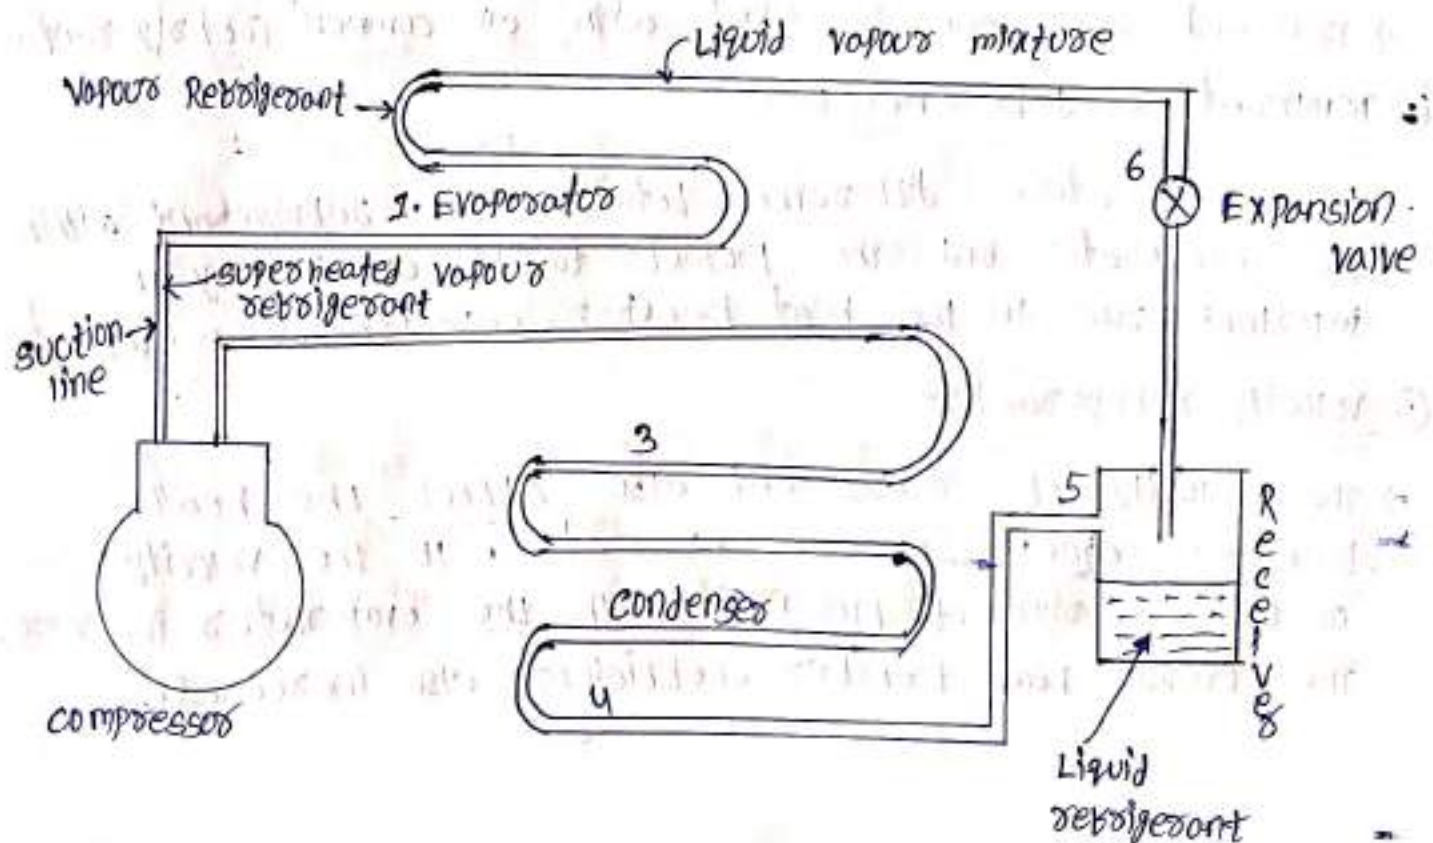 Liquid vapour mixture
Vapour Refrigerant
6
1. Evaporator
Expansion
valve
superheated vapour
refrigerant
suction
line
3
5
Receiver
condenser
4
compressor
Liquid
refrigerant